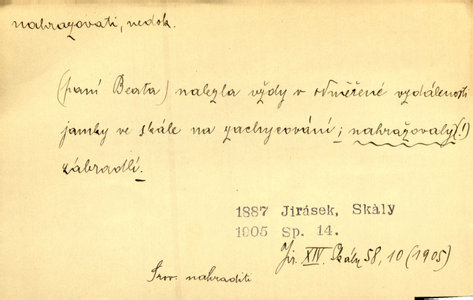 nahrazovati, nedok.
(paní Beata) nalezla vždy v odměřené vzdálenosti
jamky ve skále na zachycování; nahražovaly(!)
zábradlí.
1887 Jirásek, Skály
1905 Sp. 14.
Jir. XIV. Skály 58, 10 (1905)
Srov. nahraditi